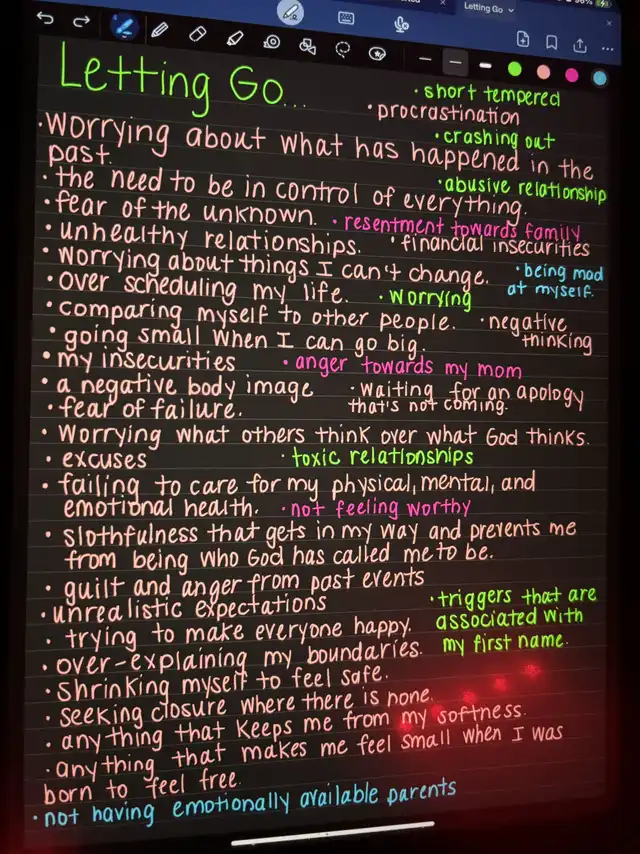 Letting Go
96%
Letting Go...
• short tempered
• procrastination
• crashing out
• worrying about what has happened in the
past.
• abusive relationship
• the need to be in control of everything.
• fear of the unknown.
• resentment towards family
• unhealthy relationships.
• financial insecurities
• worrying about things I can't change.
• being mad
at myself.
• over scheduling my life.
• worrying
• comparing myself to other people.
• negative
thinking
• going small when I can go big.
• my insecurities
• anger towards my mom
• a negative body image
• waiting for an apology
that's not coming.
• fear of failure.
• worrying what others think over what God thinks.
• excuses
• toxic relationships
• failing to care for my physical, mental, and
emotional health.
• not feeling worthy
• slothfulness that gets in my way and prevents me
from being who God has called me to be.
• guilt and anger from past events
• unrealistic expectations
• triggers that are
associated with
my first name.
• trying to make everyone happy.
• over-explaining my boundaries.
• shrinking myself to feel safe.
• seeking closure where there is none.
• anything that keeps me from my softness.
• anything that makes me feel small when I was
born to feel free.
• not having emotionally available parents